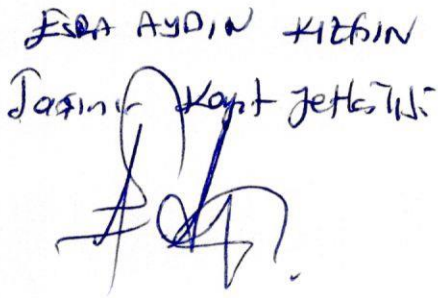 ESRA AYDIN
Taşınır Kayıt Yetkilisi